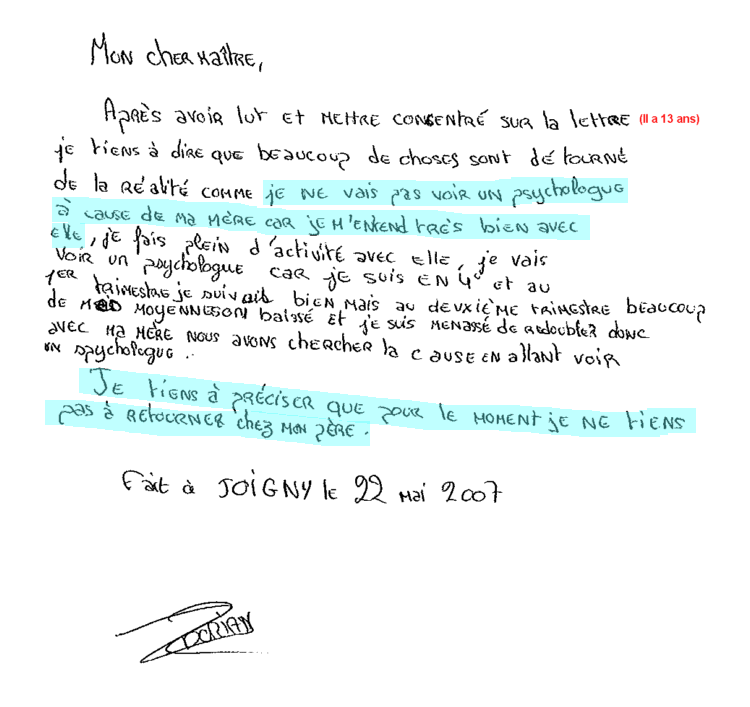 Mon cher maître,
Après avoir lut et mettre consentré sur la lettre (Il a 13 ans)
je tiens à dire que beaucoup de choses sont détourné
de la réalité comme je ne vais pas voir un psychologue
à cause de ma mère car je m'entend très bien avec
elle, je fais plein d'activité avec elle, je vais
voir un psychologue car je suis en 4° et au
1er trimestre je suivait bien mais au deuxième trimestre beaucoup
de moyenneson baissé et je suis menassé de redoubler donc
avec ma mère nous avons chercher la cause en allant voir
un spychologue..
Je tiens à préciser que pour le moment je ne tiens
pas à retourner chez mon père.
Fait à JOIGNY le 22 mai 2007
DORIAN